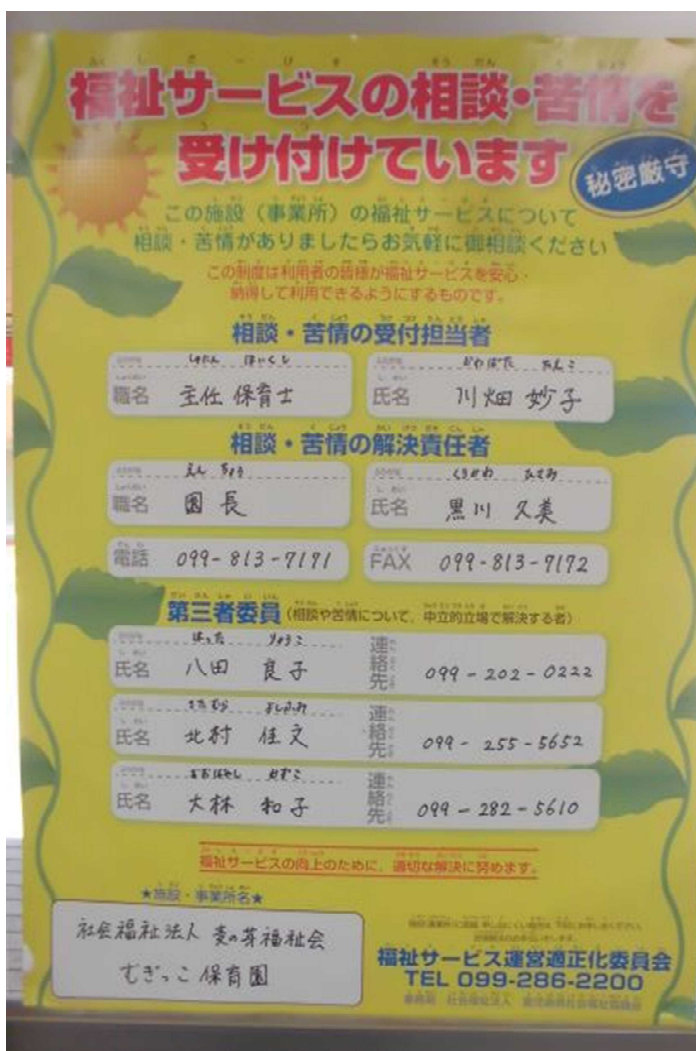 福祉サービスの相談・苦情を
受け付けています
秘密厳守
この施設（事業所）の福祉サービスについて
相談・苦情がありましたらお気軽に御相談ください
この制度は利用者の皆様が福祉サービスを安心・
納得して利用できるようにするものです。
相談・苦情の受付担当者
しゅにん ほいくし
職名 主任 保育士
かわばた たえこ
氏名 川畑 妙子
相談・苦情の解決責任者
えん ちょう
職名 園長
くろかわ ひさみ
氏名 黒川 久美
電話 099-813-7171
FAX 099-813-7172
第三者委員（相談や苦情について、中立的立場で解決する者）
はった りょうこ
氏名 八田 良子
連絡先 099-202-0222
きたむら よしふみ
氏名 北村 佳文
連絡先 099-255-5652
おおばやし かずこ
氏名 大林 和子
連絡先 099-282-5610
福祉サービスの向上のために、適切な解決に努めます。
★施設・事業所名★
社会福祉法人 麦の芽福祉会
むぎっこ保育園
福祉サービス運営適正化委員会
TEL 099-286-2200
事務局 社会福祉法人 鹿児島県社会福祉協議会